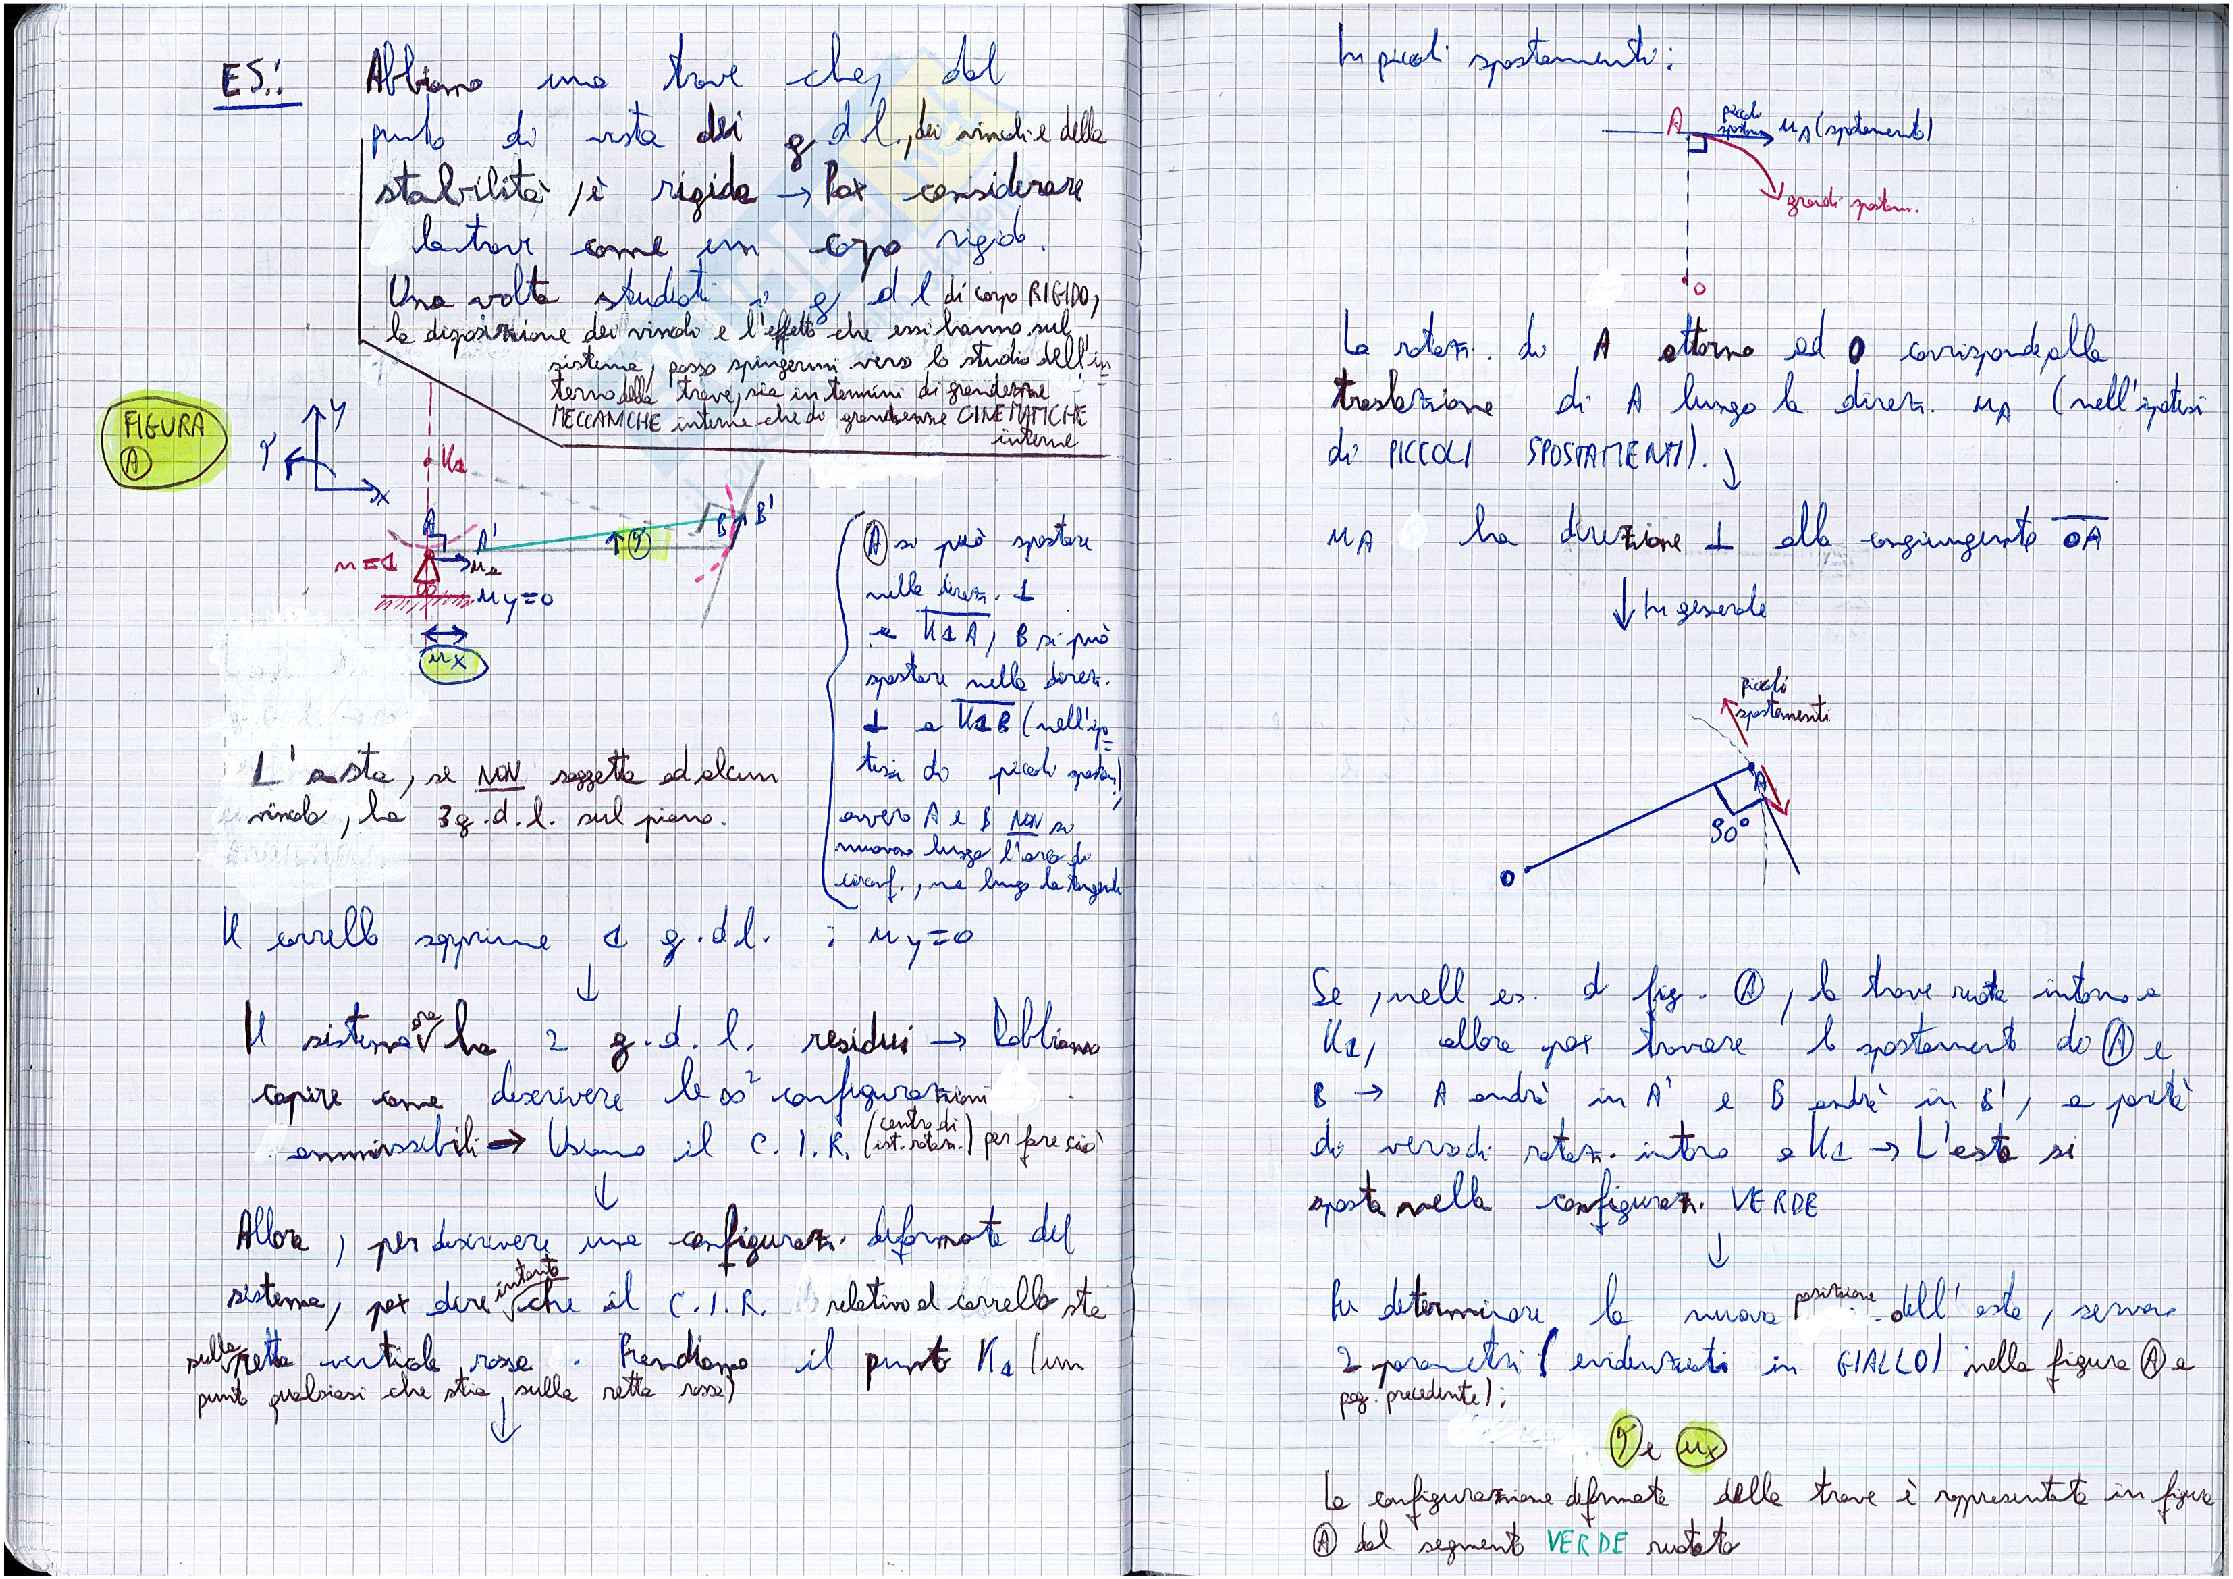 ES.: Abbiamo una trave che, dal
punto di vista dei g d l., dei vincoli e della
stabilità, è rigida → Pox considerare
la trave come un corpo rigido.
Una volta studiati i g d l di corpo RIGIDO,
la disposizione dei vincoli e l'effetto che essi hanno sul
sistema, posso spingermi verso lo studio dell'in=
terno della trave, sia in termini di grandezze
MECCANICHE interne che di grandezze CINEMATICHE
interne
FIGURA
A
y
φ
x
K1
A
A'
B
B'
φ
m=1
uA
uy=0
ux
A si può spostare
nella direz. ⊥
a K1A, B si può
spostare nella direz.
⊥ a K1B (nell'ipo=
tesi di piccoli spostam.)
ovvero A e B NON si
muovono lungo l'arco di
circonf., ma lungo la tangente
L'asta, se NON soggetta ad alcun
vincolo, ha 3 g.d.l. sul piano.
Il carrello sopprime 1 g.d.l. : uy=0
↓
Il sistema ora ha 2 g.d.l. residui → Dobbiamo
capire come descrivere le ∞² configurazioni
ammissibili → Usiamo il C.I.R. (centro di ist. rotaz.) per fare ciò
↓
Allora, per descrivere una configuraz. deformata del
sistema, pox dire intanto che il C.I.R. relativo al carrello sta
sulla retta verticale rossa. Prendiamo il punto K1 (un
punto qualsiasi che stia sulla retta rossa)
↓
In piccoli spostamenti:
A
piccoli
spostam.
uA (spostamento)
grandi spostam.
O
La rotaz. di A attorno ad O corrisponde alla
traslazione di A lungo la direz. uA (nell'ipotesi
di PICCOLI SPOSTAMENTI). ↓
uA ha direzione ⊥ alla congiungente OA
↓ In generale
piccoli
spostamenti
A
90°
O
Se, nell es. di fig. A, la trave ruota intorno a
K1, allora pox trovare lo spostamento di A e
B → A andrà in A' e B andrà in B', a parità
di verso di rotaz. intorno a K1 → L'asta si
sposta nella configuraz. VERDE
↓
Per determinare la nuova posizione dell'asta, servono
2 parametri (evidenziati in GIALLO) nella figura A a
pag. precedente):
φ e ux
La configurazione deformata della trave è rappresentata in figura
A dal segmento VERDE ruotato